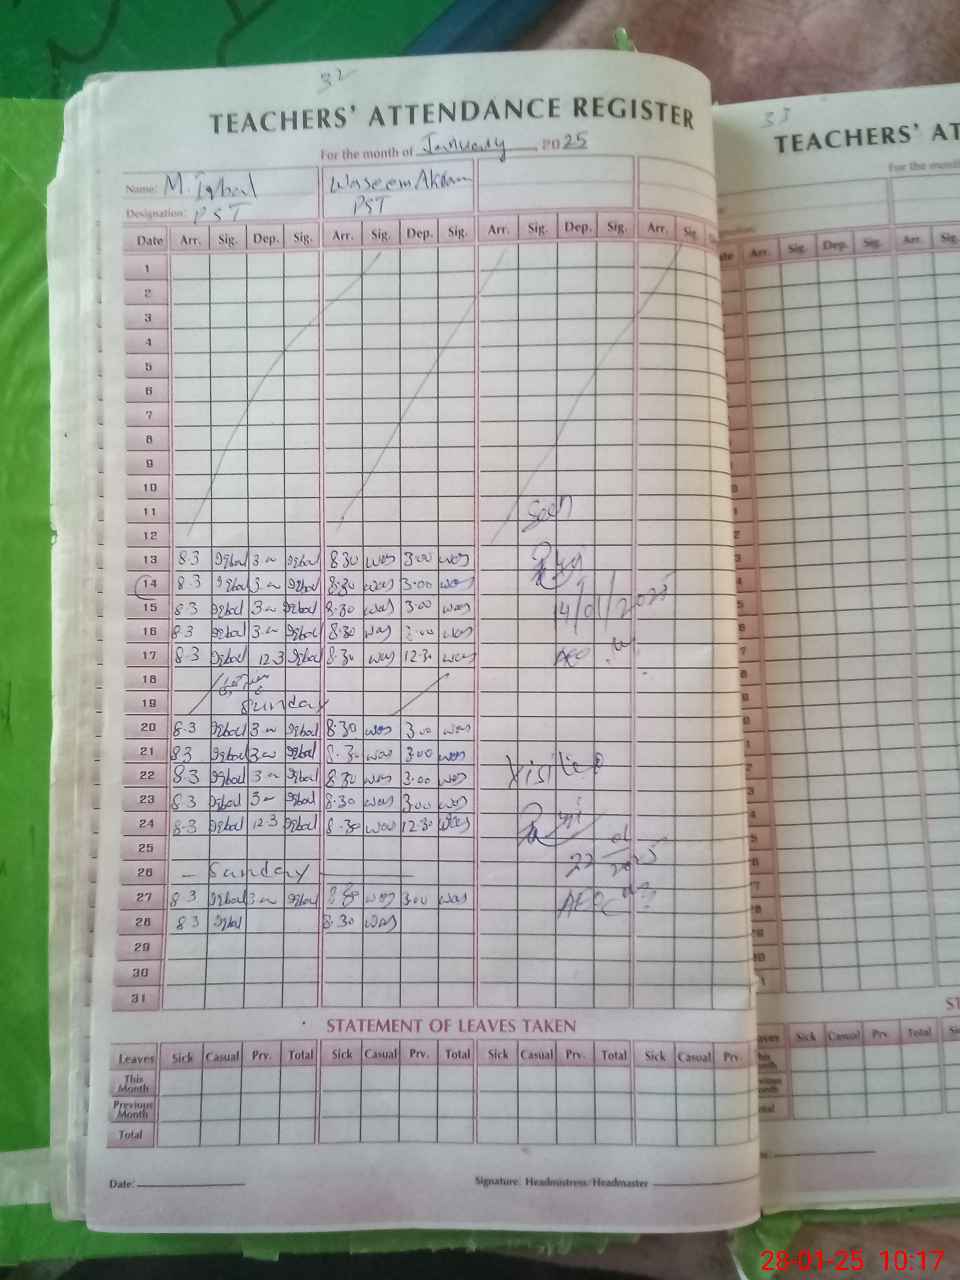 32
TEACHERS' ATTENDANCE REGISTER
For the month of January 2025
Name: M. Iqbal Waseem Akram
Designation: PST PST
Date Arr. Sig. Dep. Sig. Arr. Sig. Dep. Sig. Arr. Sig. Dep. Sig. Arr. Sig.
1
2
3
4
5
6
7
8
9
10
11 Seen
12
13 8.3 Iqbal 3 Iqbal 8.30 was 3.00 was
14 8.3 Iqbal 3 Iqbal 8.30 was 3.00 was
15 8.3 Iqbal 3 Iqbal 8.30 was 3.00 was 14/01/2025
16 8.3 Iqbal 3 Iqbal 8.30 was 3.00 was
17 8.3 Iqbal 12.3 Iqbal 8.30 was 12.30 was AEO
18
19 Sunday
20 8.3 Iqbal 3 Iqbal 8.30 was 3.00 was
21 8.3 Iqbal 3 Iqbal 8.30 was 3.00 was
22 8.3 Iqbal 3 Iqbal 8.30 was 3.00 was Visited
23 8.3 Iqbal 3 Iqbal 8.30 was 3.00 was
24 8.3 Iqbal 12.3 Iqbal 8.30 was 12.30 was
25
26 Sunday
27 8.3 Iqbal 3 Iqbal was 3.00 was AEO
28 8.3 Iqbal 8.30 was
29
30
31
STATEMENT OF LEAVES TAKEN
Leaves Sick Casual Prv. Total Sick Casual Prv. Total Sick Casual Prv. Total Sick Casual Prv.
This Month
Previous Month
Total
Date:
Signature: Headmistress/Headmaster
33
TEACHERS' AT
For the month
Arr. Sig. Dep. Sig. Arr. Sig.
Sick Casual Prv. Total Sick Casual
28-01-25 10:17